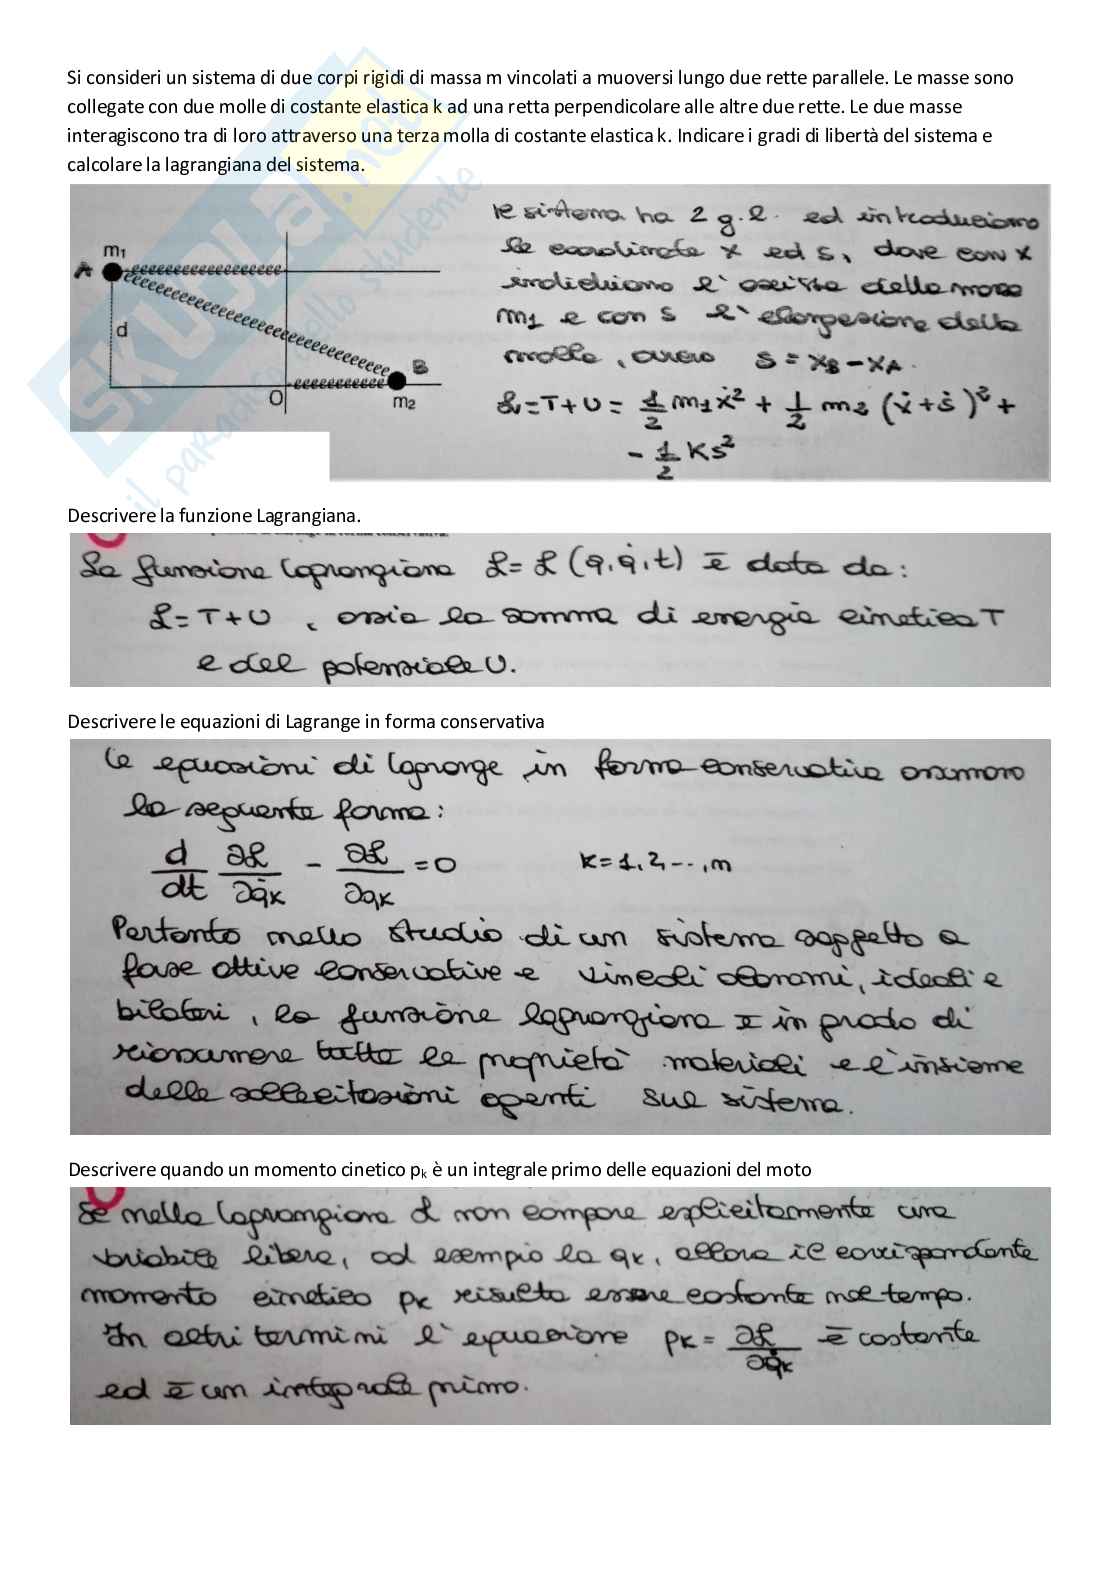 Si consideri un sistema di due corpi rigidi di massa m vincolati a muoversi lungo due rette parallele. Le masse sono
collegate con due molle di costante elastica k ad una retta perpendicolare alle altre due rette. Le due masse
interagiscono tra di loro attraverso una terza molla di costante elastica k. Indicare i gradi di libertà del sistema e
calcolare la lagrangiana del sistema.
SKUOLA.net
il paradiso dello studente
A
m₁
d
O
B
m₂
Il sistema ha 2 g.l. ed introduciamo
le coordinate x ed s, dove con x
indichiamo l'ascissa della massa
m₁ e con s l'elongazione della
molla, ovvero s = x_B - x_A.
L = T+U = 1/2 m₁ẋ² + 1/2 m₂ (ẋ+ṡ)² +
- 1/2 Ks²
Descrivere la funzione Lagrangiana.
La funzione lagrangiana L = L (q, q̇, t) è data da:
L = T+U , ossia la somma di energia cinetica T
e del potenziale U.
Descrivere le equazioni di Lagrange in forma conservativa
Le equazioni di Lagrange in forma conservativa assumono
la seguente forma:
d/dt ∂L/∂q̇ₖ - ∂L/∂qₖ = 0 K=1,2,--,n
Pertanto nello studio di un sistema soggetto a
forze attive conservative e vincoli olonomi, ideali e
bilateri, la funzione lagrangiana è in grado di
riassumere tutte le proprietà materiali e l'insieme
delle sollecitazioni agenti sul sistema.
Descrivere quando un momento cinetico pₖ è un integrale primo delle equazioni del moto
Se nella Lagrangiana L non compare esplicitamente una
variabile libera, ad esempio la qₖ, allora il corrispondente
momento cinetico pₖ risulta essere costante nel tempo.
In altri termini l'equazione pₖ = ∂L/∂q̇ₖ è costante
ed è un integrale primo.